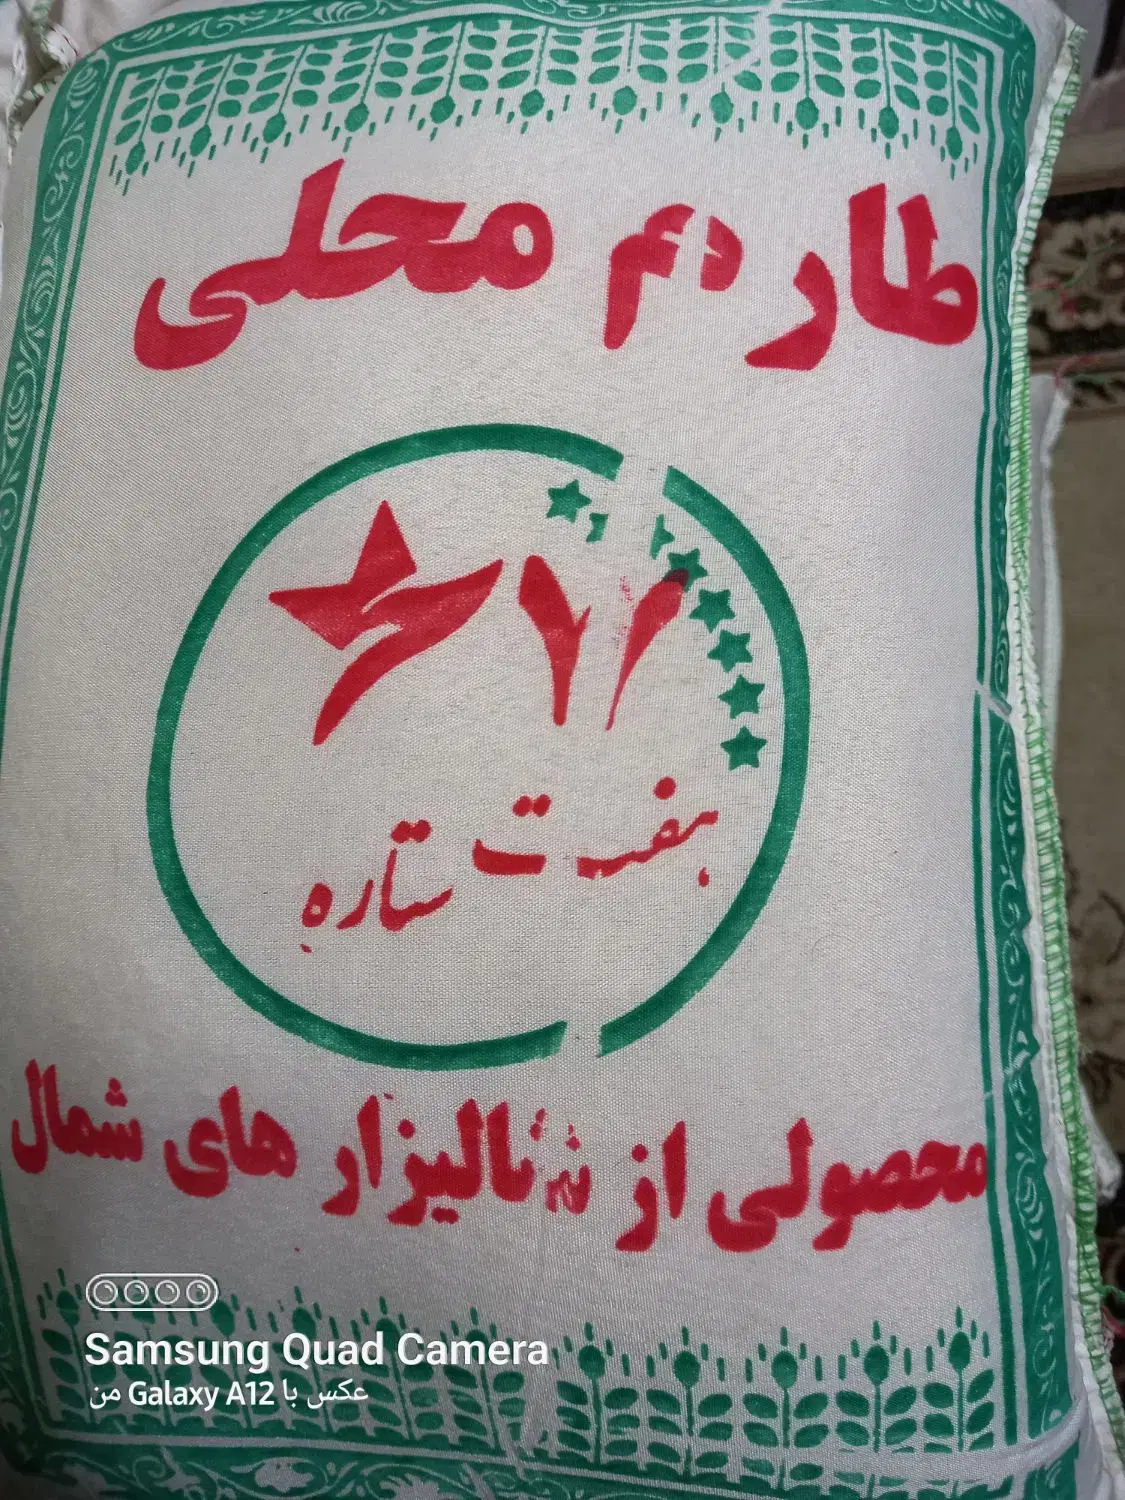 طارم محلی
۷
هفت ستاره
محصولی از شالیزار های شمال
Samsung Quad Camera
عکس با Galaxy A12 من